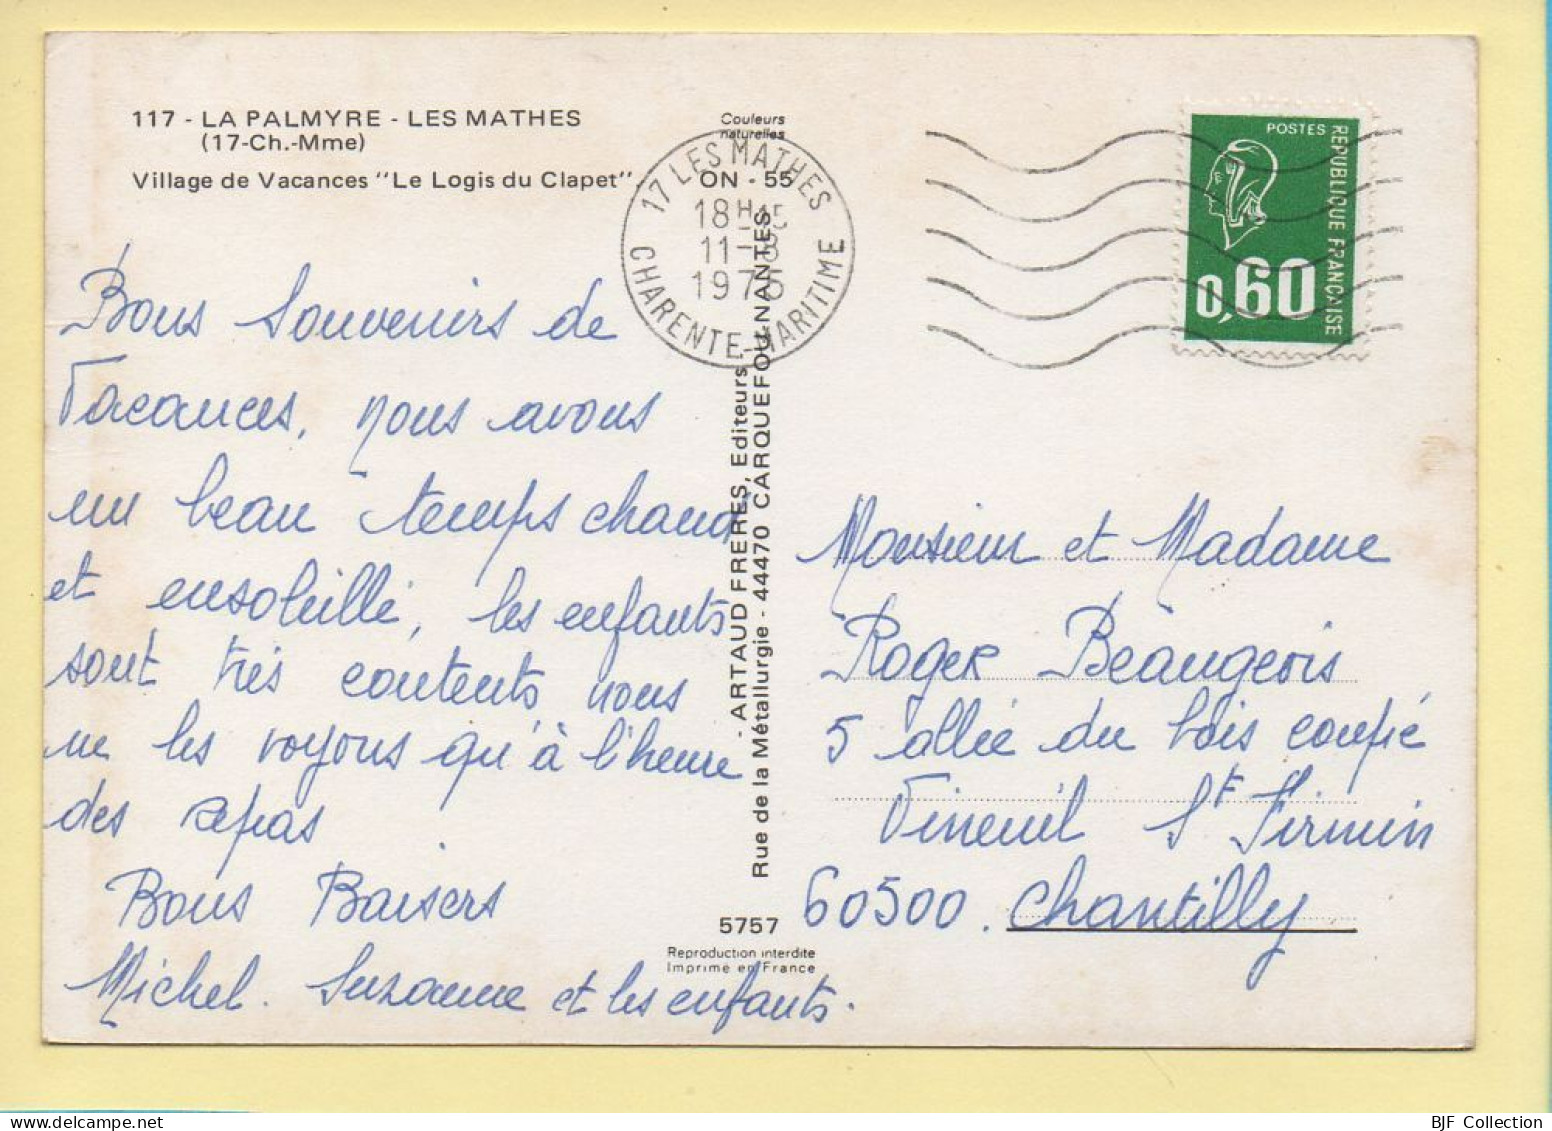 117 - LA PALMYRE - LES MATHES
(17-Ch.-Mme)
Village de Vacances "Le Logis du Clapet"
Bons Souvenirs de
Vacances, nous avons
un beau temps chaud
et ensoleillé, les enfants
sont très contents nous
ne les voyons qu'à l'heure
des repas
Bons Baisers
Michel. Suzanne et les enfants.
Couleurs
naturelles
ON - 55
17 LES MATHES
18H15
11-8
1975
CHARENTE-MARITIME
- ARTAUD FRERES, Editeurs
Rue de la Métallurgie - 44470 CARQUEFOU-NANTES
5757
Reproduction interdite
Imprimé en France
POSTES
REPUBLIQUE FRANÇAISE
0,60
Monsieur et Madame
Roger Beaugeois
5 allée du bois coupé
Vineuil St Firmin
60500. Chantilly
BJF Collection